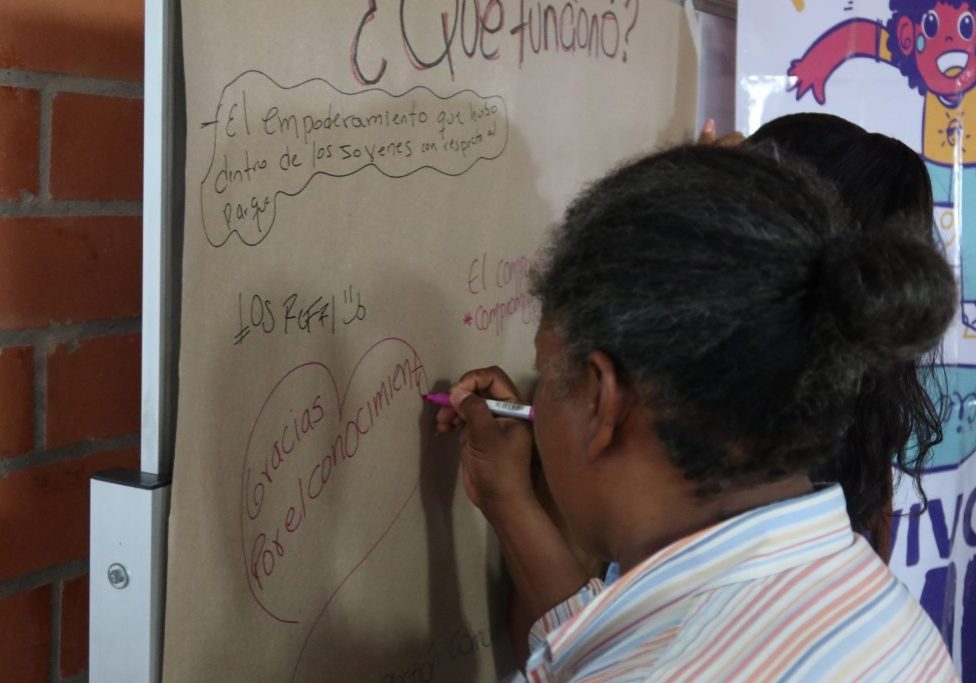 ¿Qué funcionó?
- El empoderamiento que hubo
dentro de los jovenes con respecto al
parque
LOS REFRI
El
*
Gracias
Por el conocimient